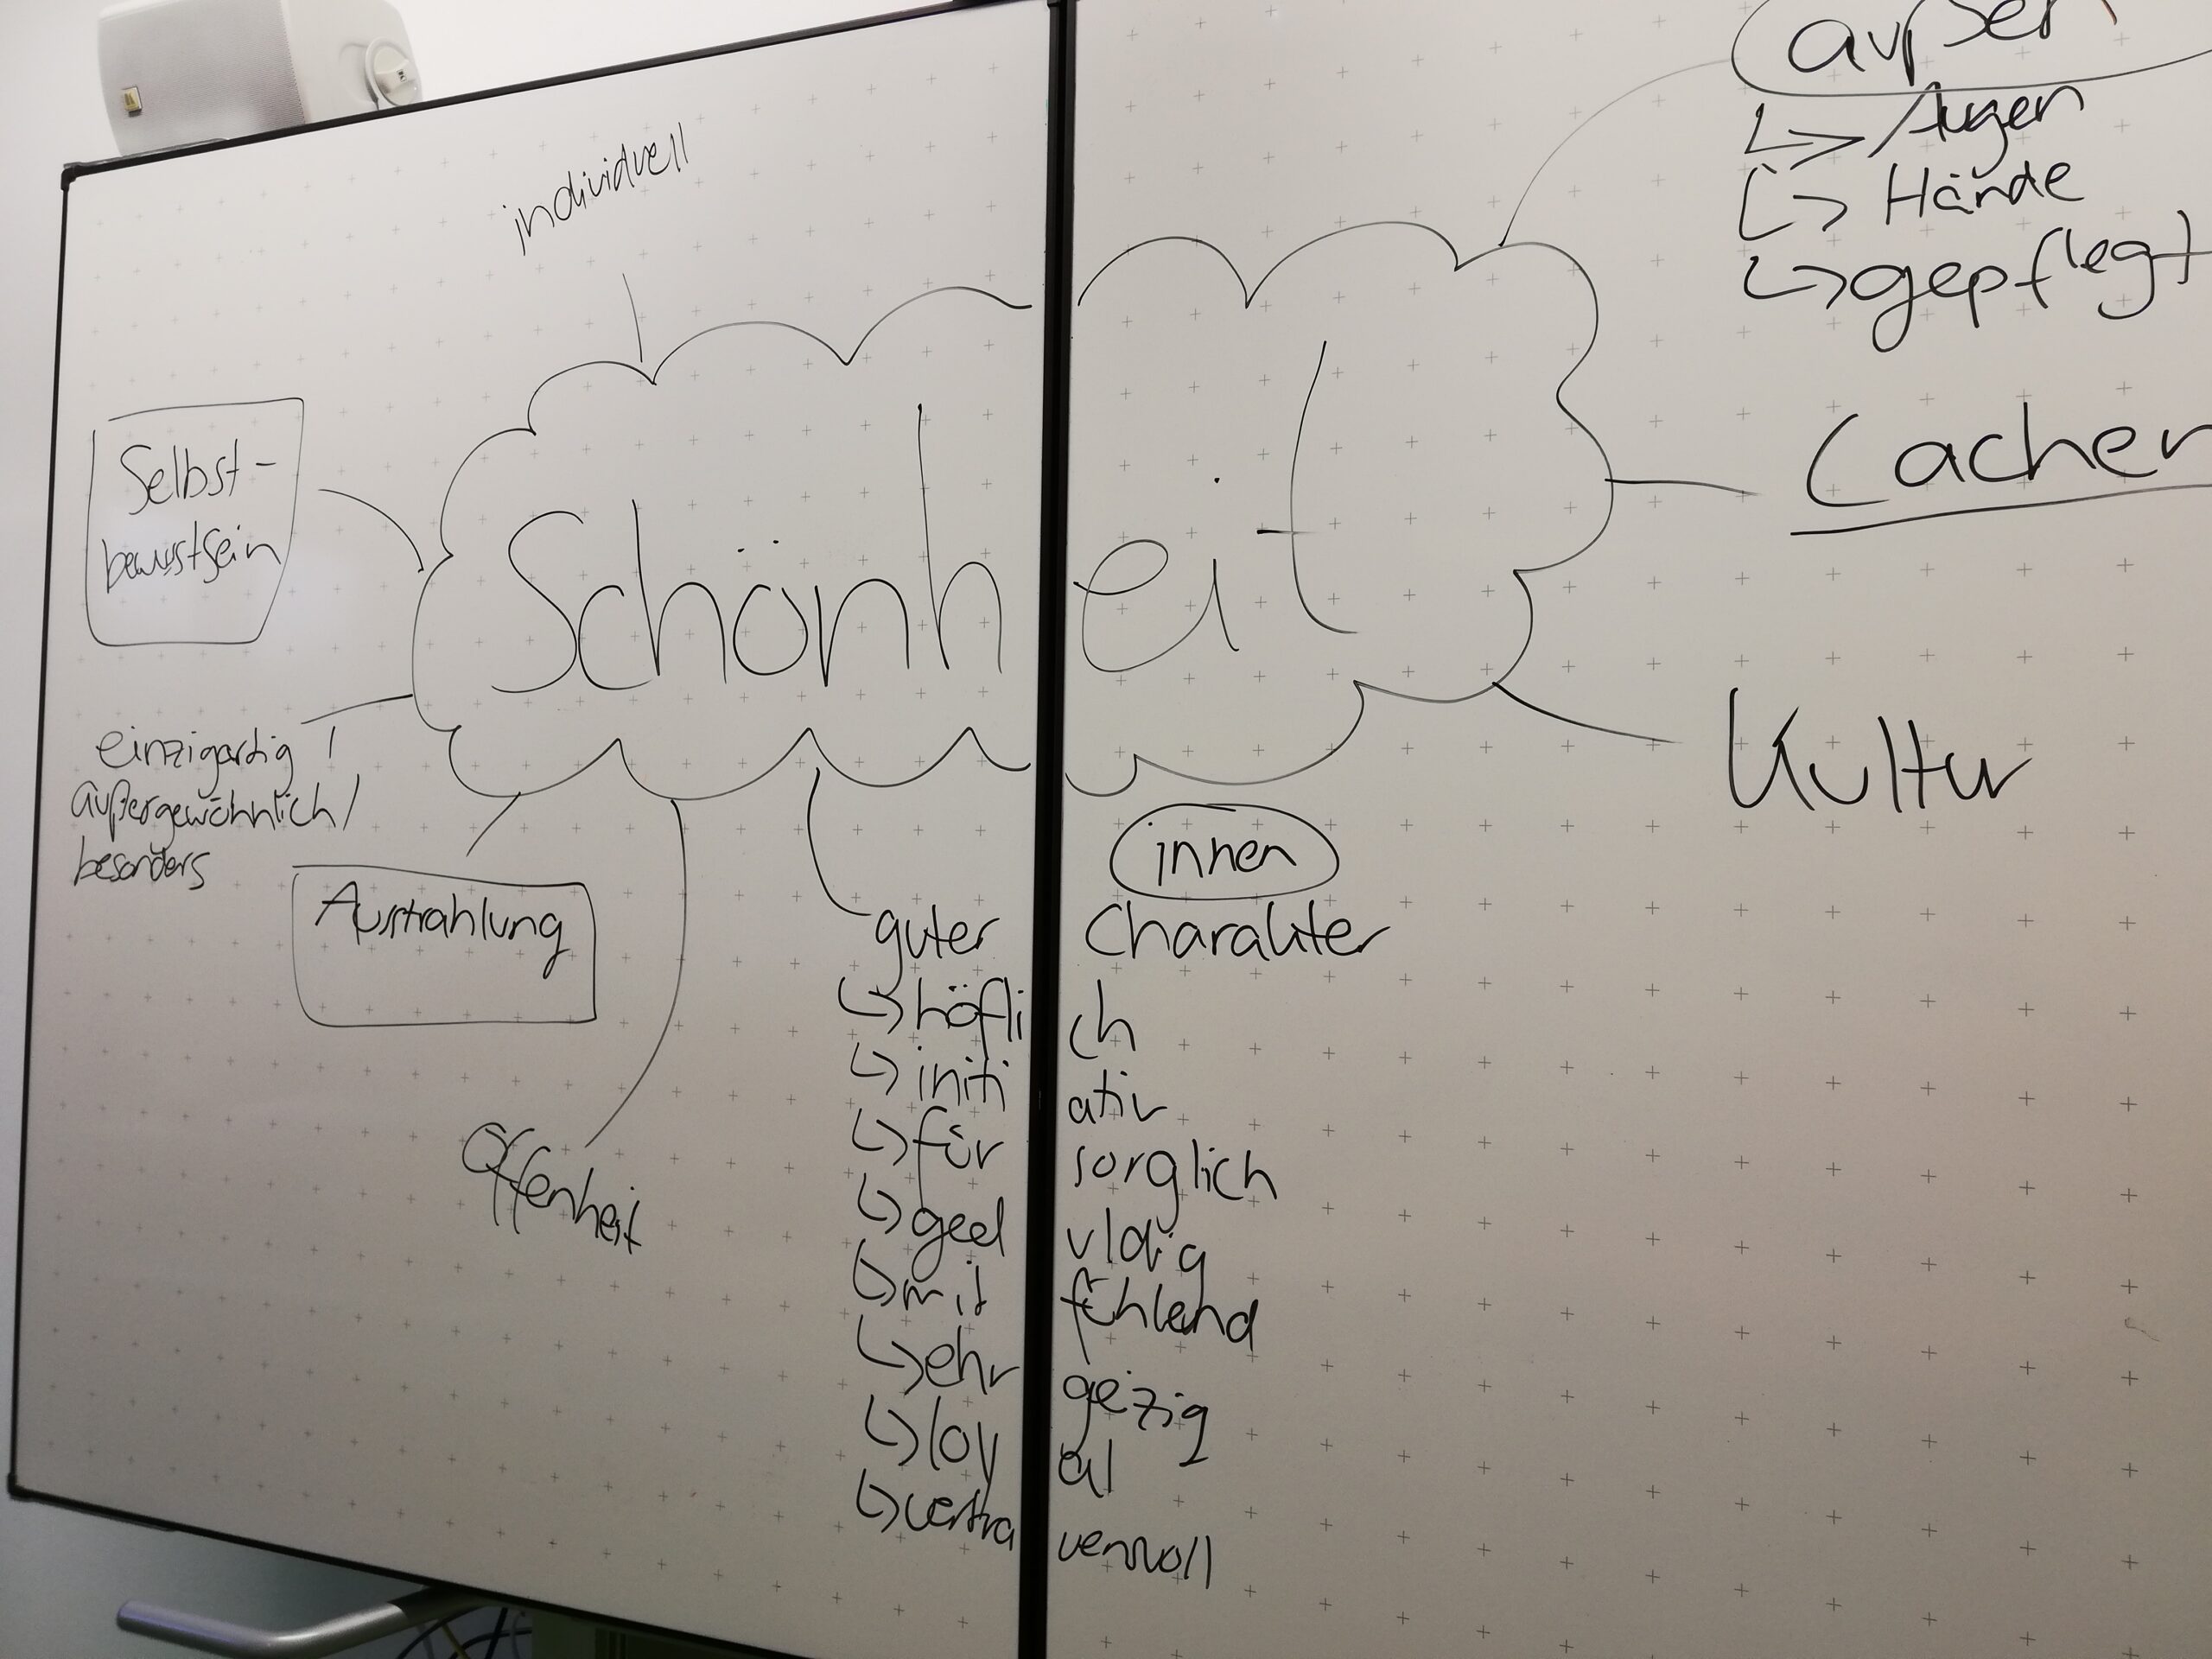 individuell
außen
↳ Augen
↳ Hände
↳ gepflegt
Lachen
Selbst-
bewusstsein
Schönheit
Kultur
einzigartig /
außergewöhnlich /
besonders
Ausstrahlung
Offenheit
innen
guter Charakter
↳ höflich
↳ initiativ
↳ fürsorglich
↳ geduldig
↳ mitfühlend
↳ ehrgeizig
↳ loyal
↳ vertrauensvoll